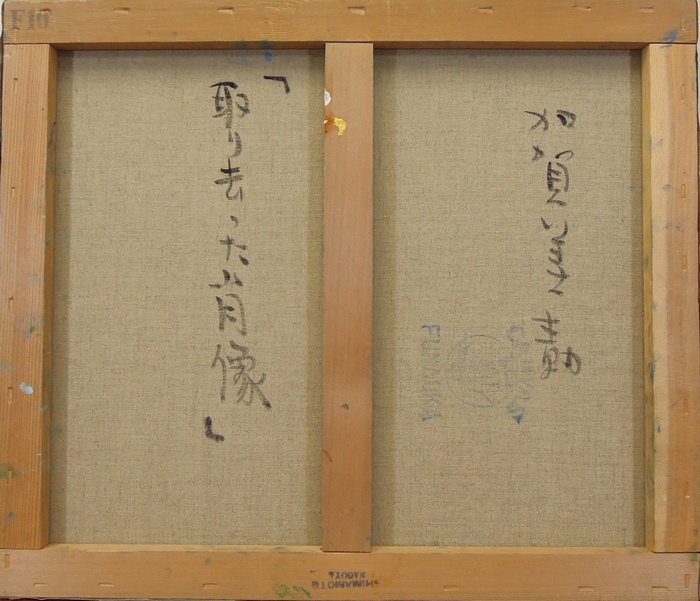 F10
加賀美勣
「取り去った肖像」
FUNAOKA
SHIMAMOTO
NAGOYA